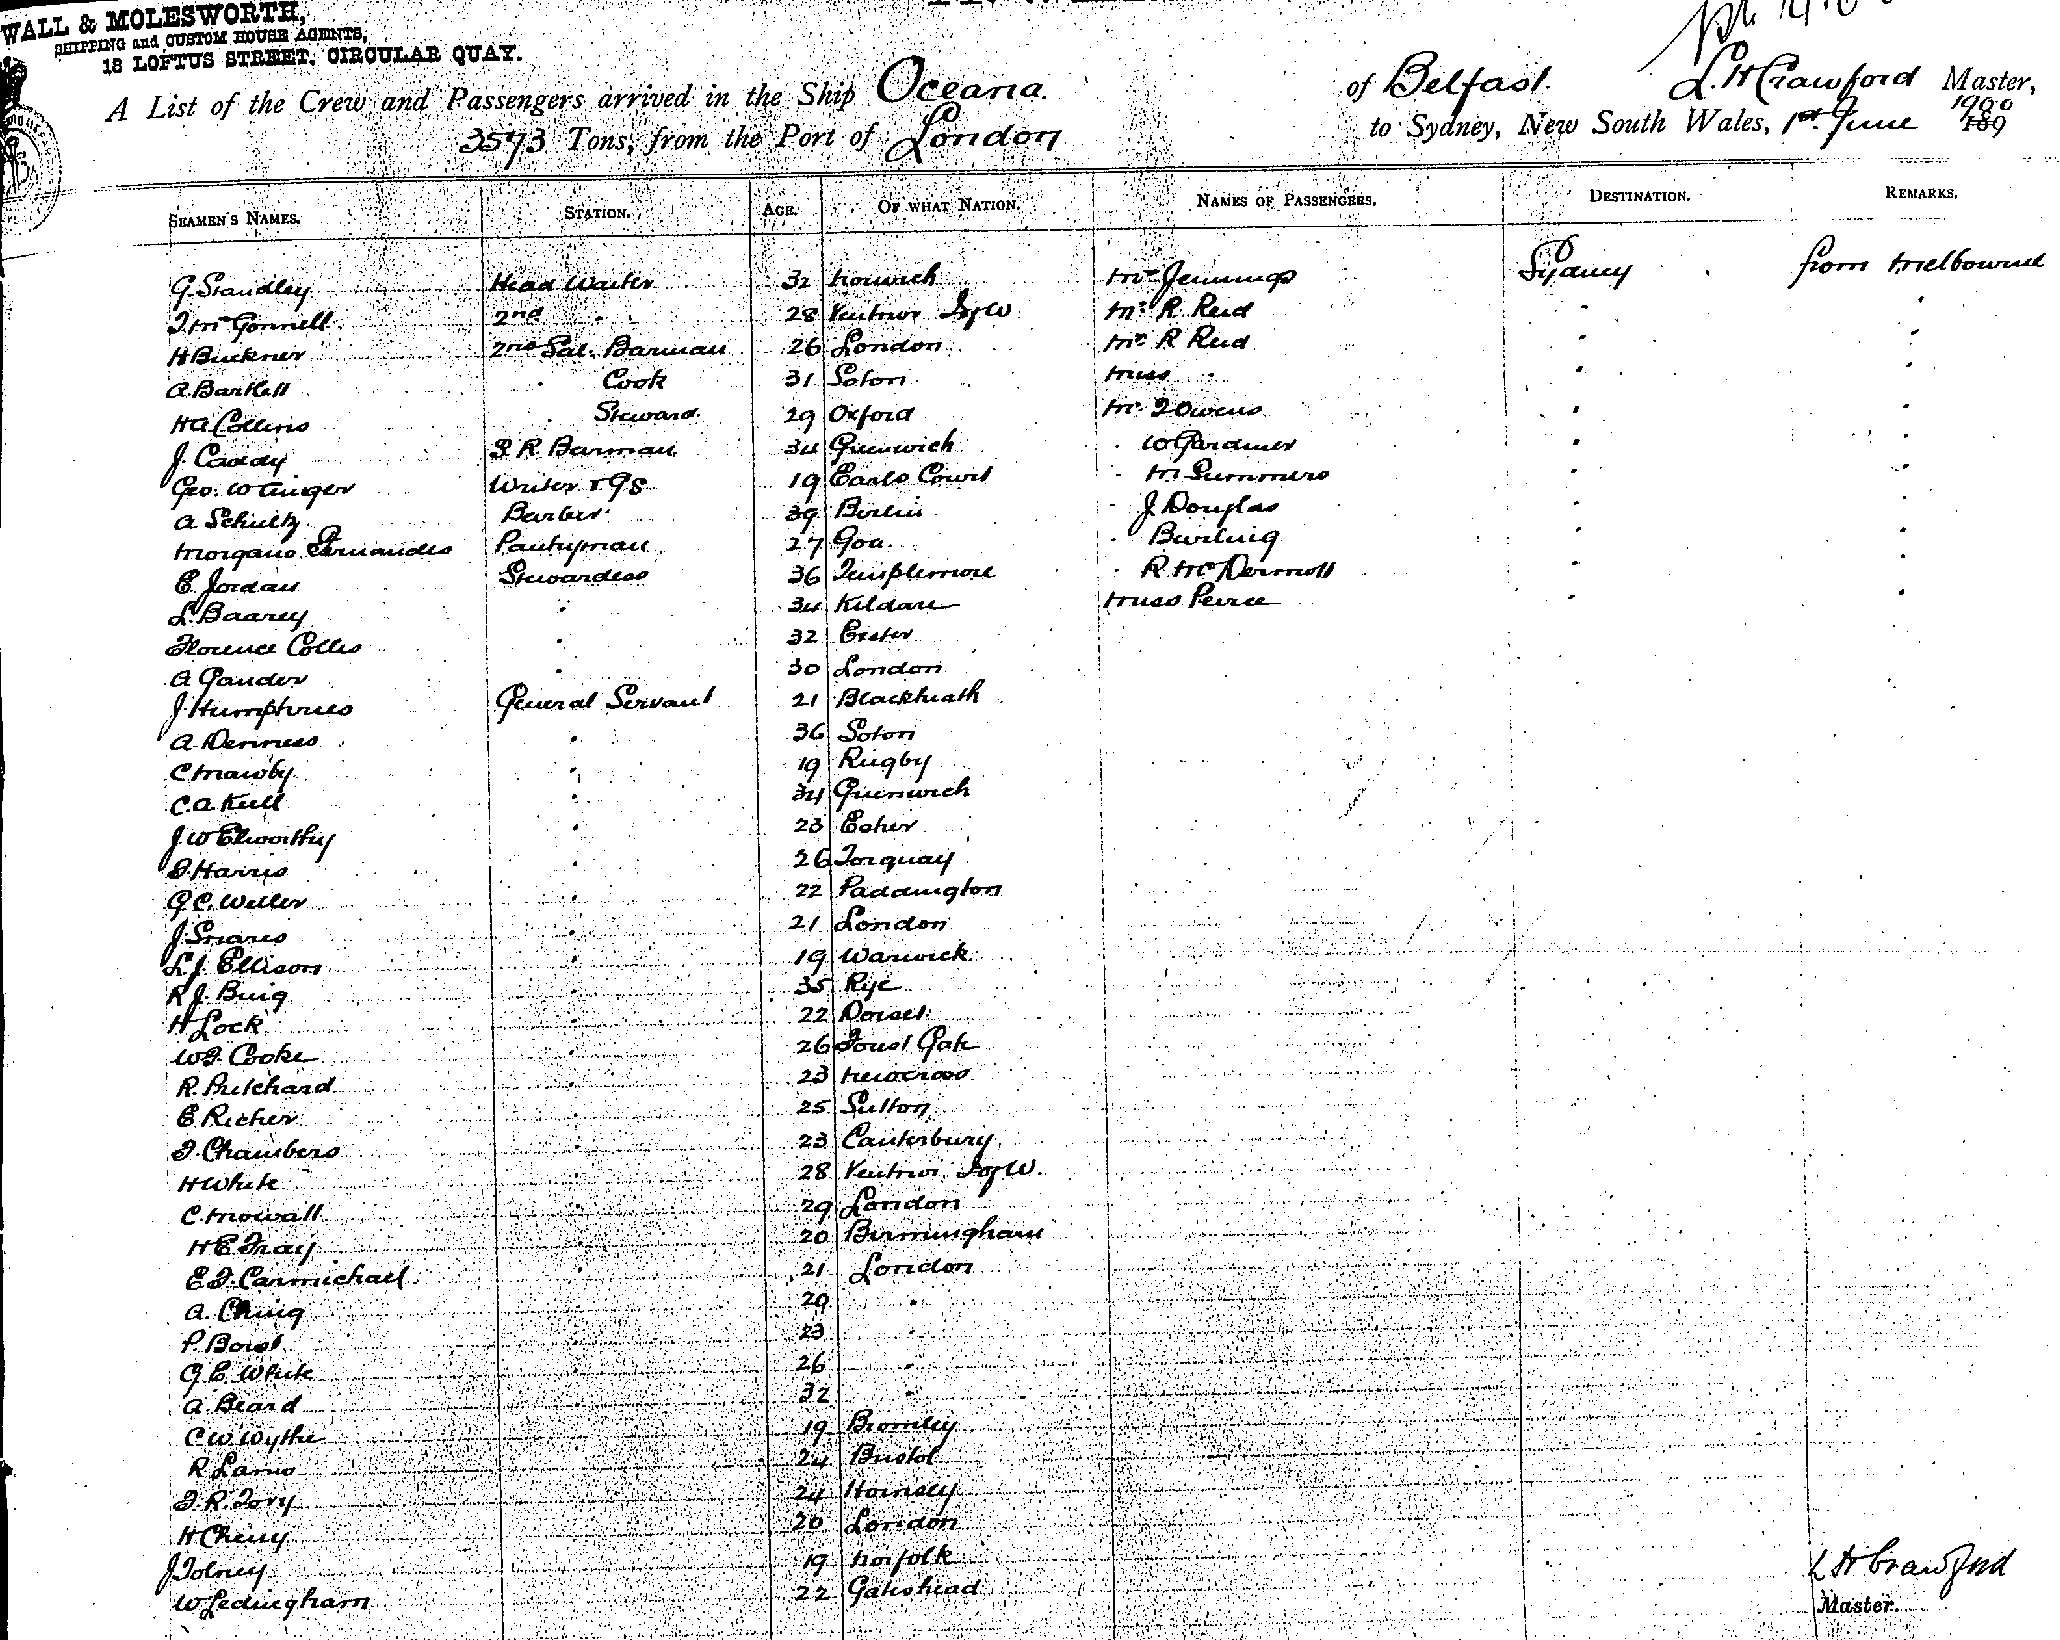 WALL & MOLESWORTH,
SHIPPING and CUSTOM HOUSE AGENTS,
18 LOFTUS STREET, CIRCULAR QUAY.
A List of the Crew and Passengers arrived in the Ship Oceana. of Belfast. L. H Crawford Master,
3573 Tons, from the Port of London to Sydney, New South Wales, 1st June 1900 189
SEAMEN'S NAMES. STATION. AGE. OF WHAT NATION. NAMES OF PASSENGERS. DESTINATION. REMARKS.
G. Standley Head Waiter 32 Norwich Mr Jennings Sydney from Melbourne
J. McGonnell 2nd " 28 Ventnor I of W Mr R Reid " "
H Buckner 2nd Sal. Barman 26 London Mr R Reid " "
A. Bartlett " Cook 31 Soton Miss " " "
H A Collins " Steward 29 Oxford Mr J Owens " "
J. Caddy S R Barman 34 Greenwich " W Gardiner " "
Geo. W Ginger Writer & GS 19 Earls Court " M Summers " "
A Schultz Barber 39 Berlin " J Douglas " "
Morgano Fernandes Pantryman 27 Goa " Burling " "
E. Jordan Stewardess 36 Templemore " R McDermott " "
L. Baarey " 34 Kildare Miss Peirce " "
Florence Colles " 32 Exeter
A Gander " 30 London
J. Humphries General Servant 21 Blackheath
A. Denness " 36 Soton
C Mawby " 19 Rugby
C. A. Kull " 34 Greenwich
J W Elworthy " 23 Esher
Harris " 26 Torquay
G C. Weller " 22 Paddington
J. Snares " 21 London
L. J. Ellison " 19 Warwick
R J. Buig " 35 Rye
H Lock " 22 Dorset
W F Cooke " 26 Forest Gate
R. Pritchard " 23 Newcross
E. Richer " 25 Sutton
F. Chambers " 23 Canterbury
H White " 28 Ventnor I of W.
C. Mowall " 29 London
H E Tray " 20 Birmingham
E. F. Carmichael " 21 London
A. Ching " 20 "
P. Borst " 23 "
G E White " 26 "
A. Beard 32 "
C. W. Wythe 19 Bromley
R Larns 24 Bristol
F. R. Tory 24 Hornsey
H Cherry 20 London
J Tolney 19 Norfolk
W Ledingham 22 Gateshead
L H Crawford
Master.